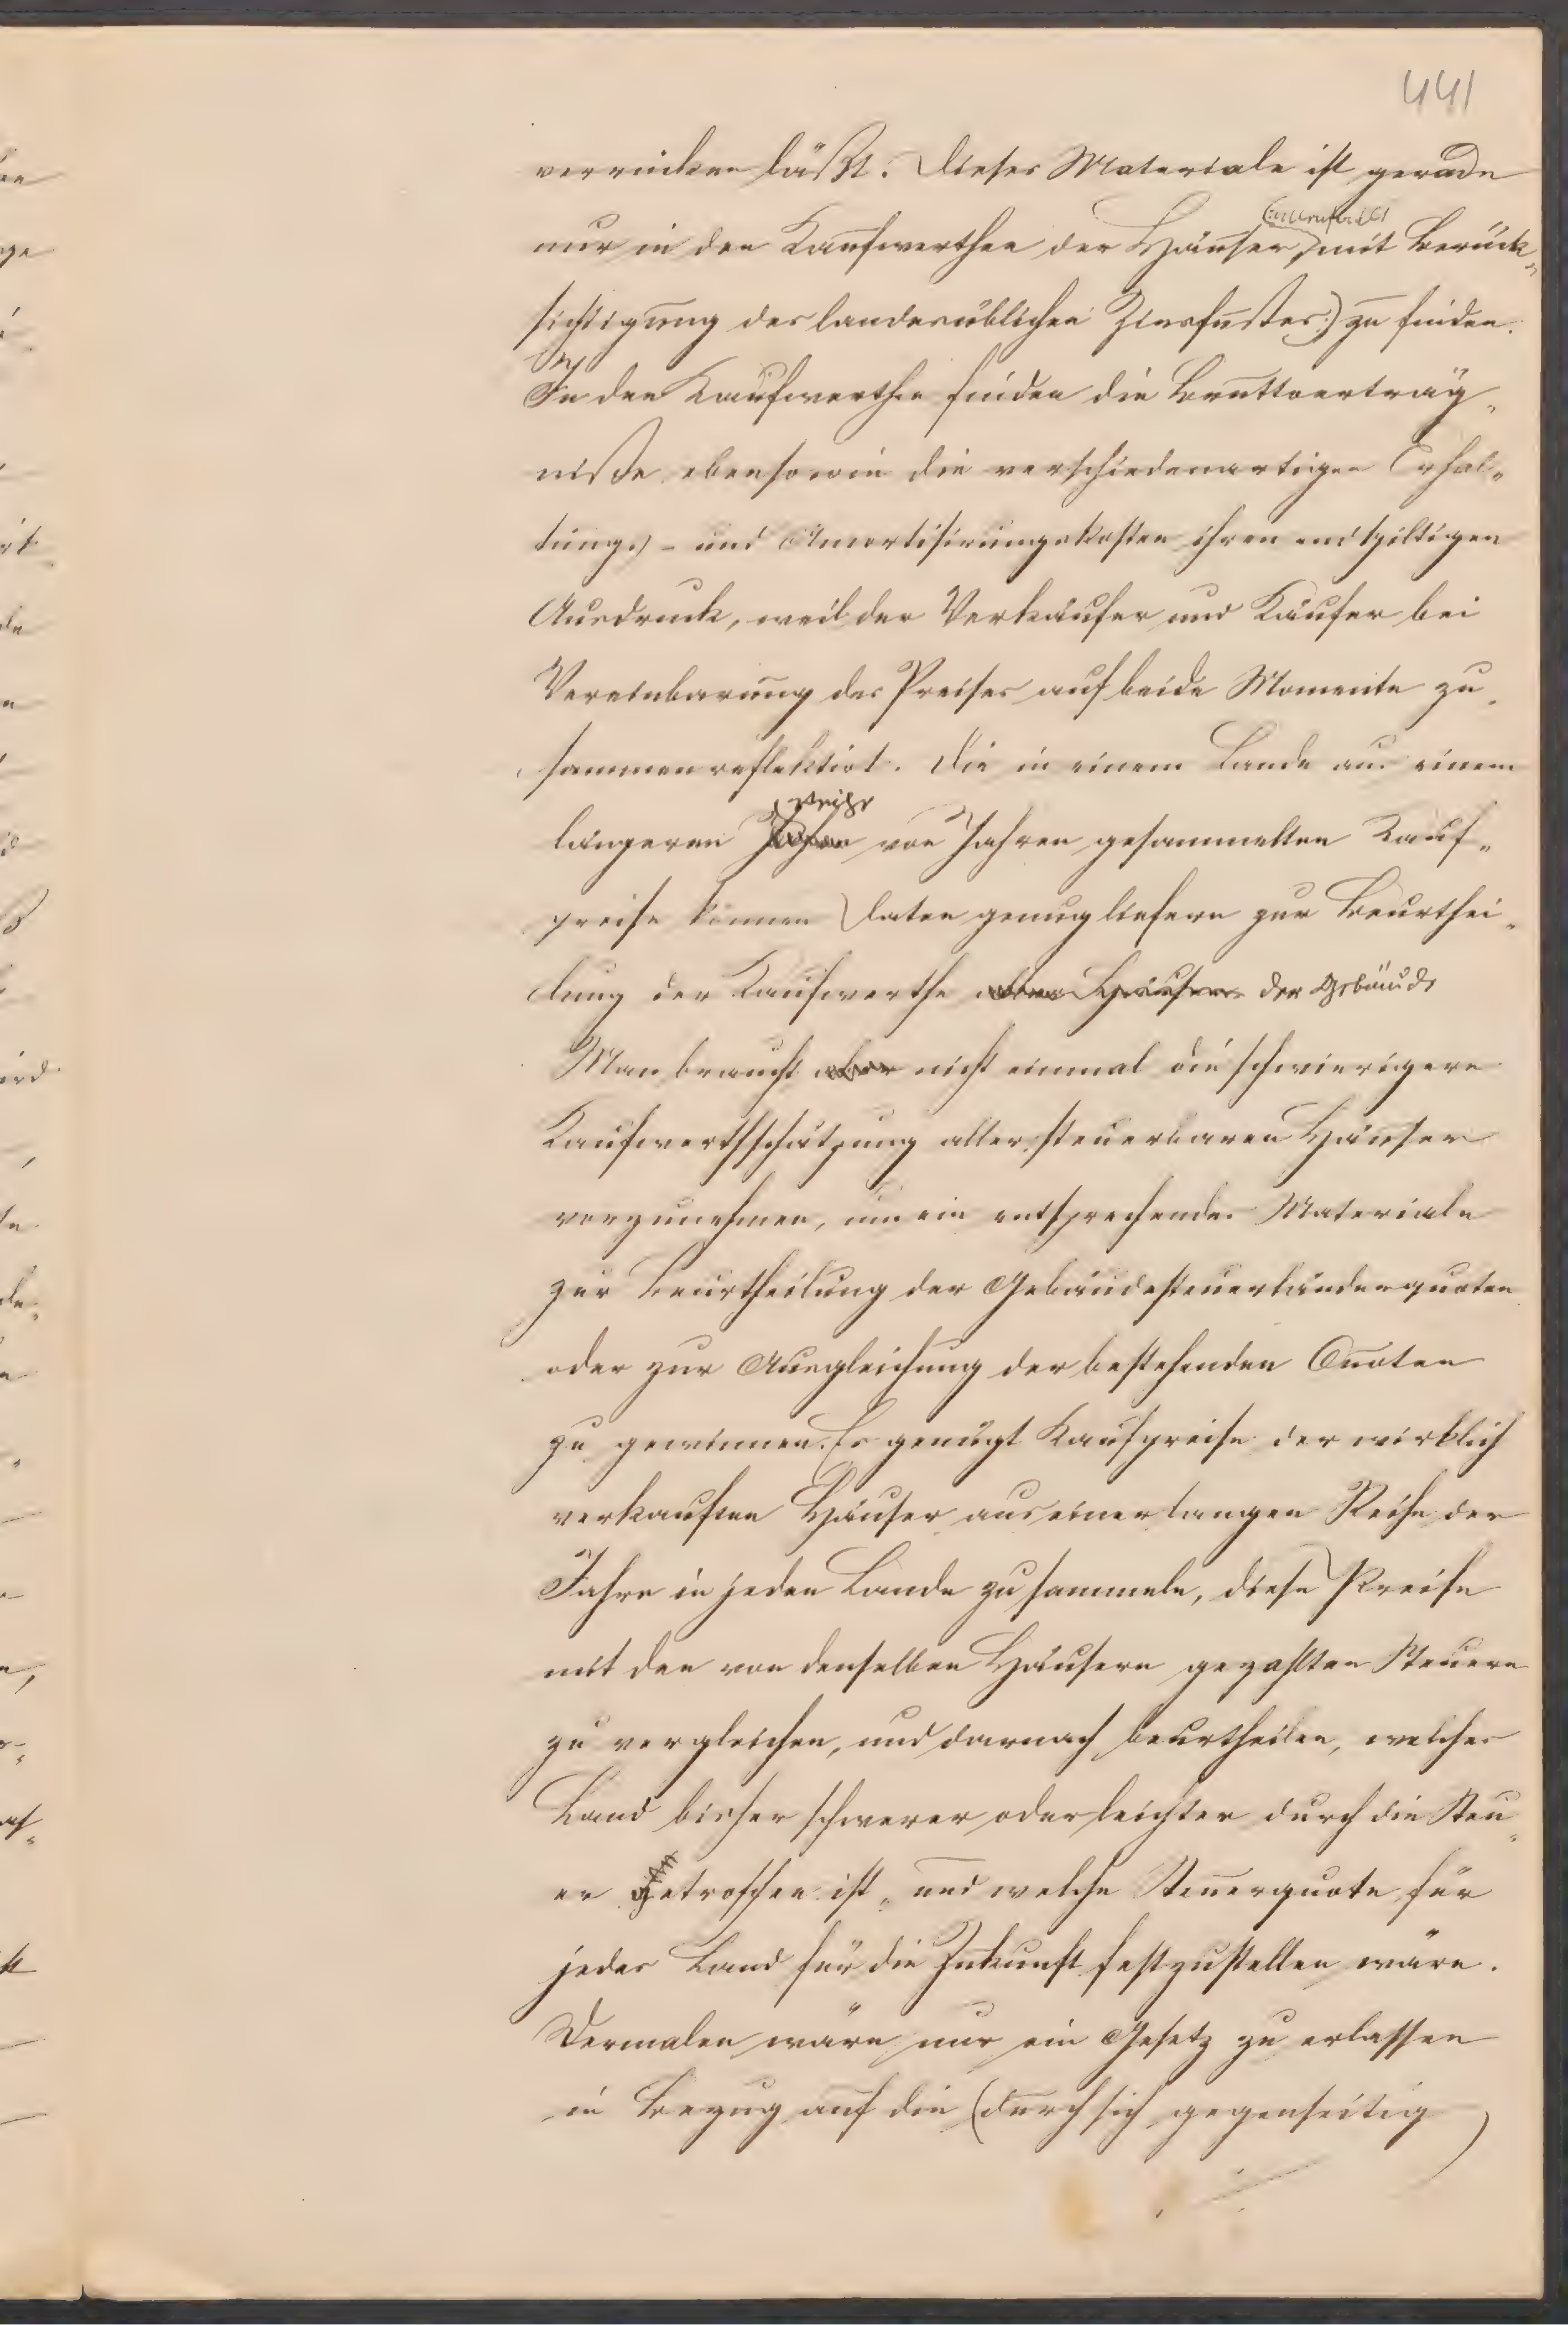 441
verrücken läßt. Dieses Materiale ist gerade
nur in den Kaufwerthen der Häuser (allenfalls mit Berück„
sichtigung des landesüblichen Zinsfußes) zu finden.
In den Kaufwerthen finden die Bruttoerträg„
niße ebensowie die verschiedenartigen Erhal„
tungs- und Amortisirungskosten ihren endgiltigen
Ausdruck, weil der Verkäufer und Käufer bei
Vereinbarung des Preises auf beide Momente zu„
sammen reflektirt. Die in einem Lande aus einem
längeren Reihe von Jahren gesammelten Kauf„
preise können Daten genug liefern zur Beurthei„
lung der Kaufwerthe aller Häuser der Gebäude
Man braucht aber nicht einmal die schwierigere
Kaufwerthschätzung aller steuerbaren Häuser
vorzunehmen, um ein entsprechendes Materiale
zur Beurtheilung der Gebäudesteuerländerquoten
oder zur Ausgleichung der bestehenden Quoten
zu gewinnen. Es genügt Kaufpreise der wirklich
verkauften Häuser aus einer langen Reihe der
Jahre in jeden Lande zu sammeln, diese Preise
mit den von denselben Häusern gezahlten Steuern
zu vergleichen, und darnach beurtheilen, welches
Land bisher schwerer oder leichter durch die Steu„
er getroffen ist, und welche Steuerquote für
jedes Land für die Zukunft festzustellen wäre.
Dermalen wäre nur ein Gesetz zu erlassen
in Bezug auf die (durch sich gegenseitig